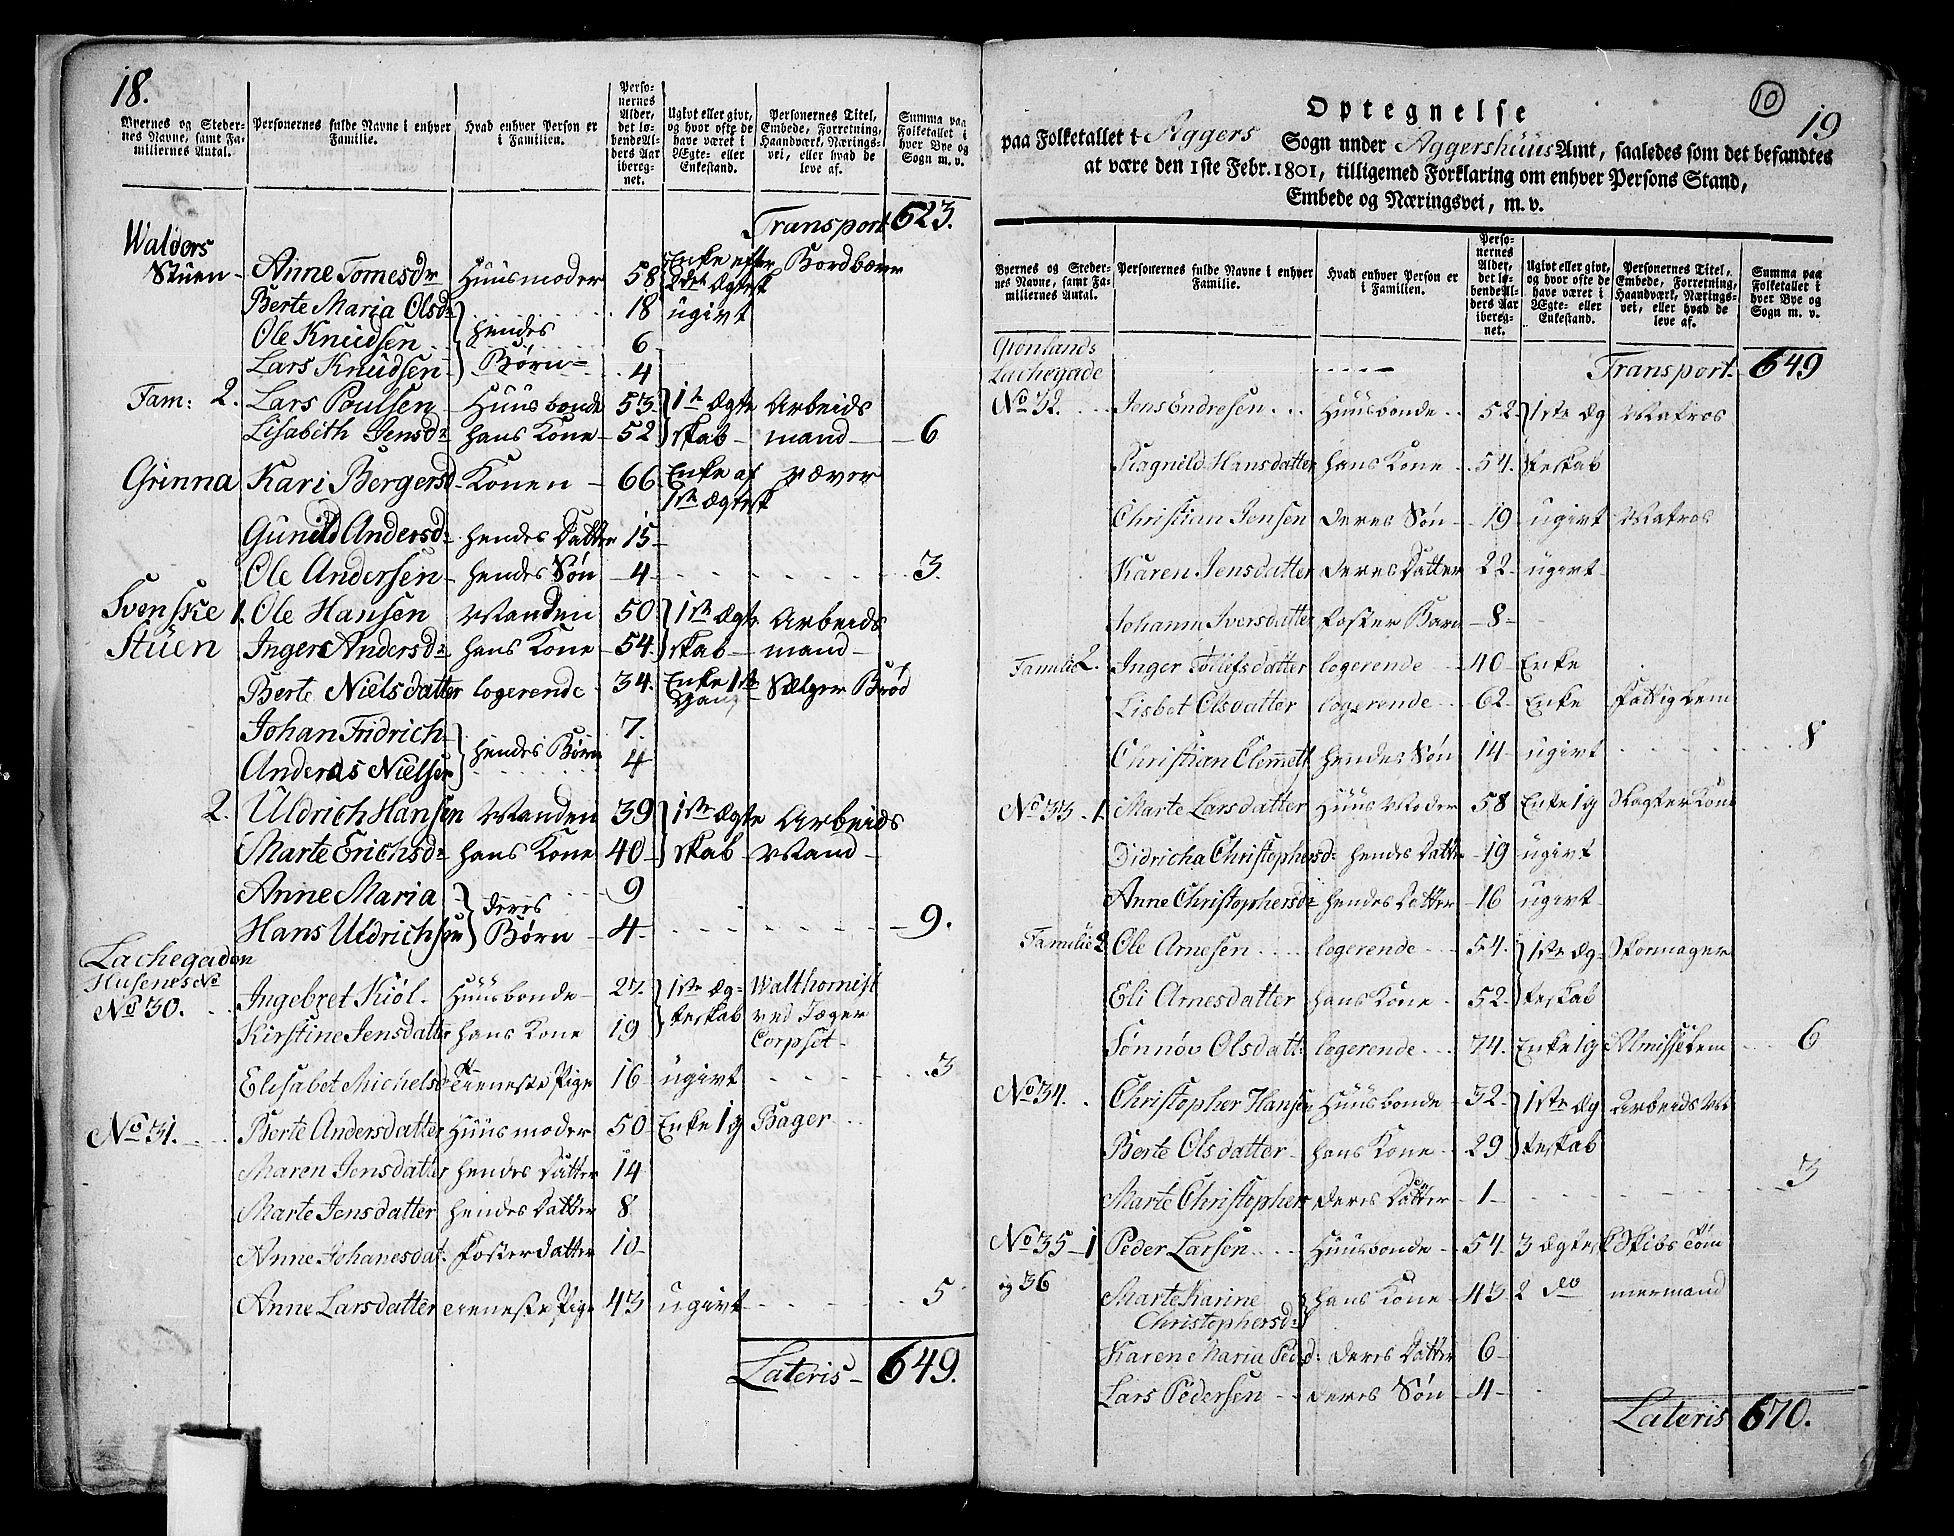 18.
Byernes og Steder-
nes Navne, samt Fa-
miliernes Antal.
Personernes fulde Navne i enhver
Familie.
Hvad enhver Person er
i Familien.
Perso-
nernes
Alder,
det lø-
bende Al-
ders Aar
iberegnet.
Ugivt eller givt,
og hvor ofte de
have været i
Ægte- eller
Enkestand.
Personernes Titel,
Embede, Forretning,
Haandværk, Nærings-
vei, eller hvad de
leve af.
Summa paa
Folketallet i
hver Bye og
Sogn m. v.
Transport 623.
Walders
Stuen - Anne Tomesdr Huusmoder 58 Enke efter 2det Ægtesk Bordbærer
Berte Maria Olsdr hendes Børn 18 ugivt
Ole Knudsen 6
Lars Knudsen 4
Fam: 2. Lars Poulsen Huusbonde 53 1ste Ægte Arbeids
Lisabith Jensdr hans Kone 52 skab mand 6
Grinna Kari Bergersd Konen 66 Enke af 1ste Ægtesk væver
Gunild Andersdr hendes Datter 15
Ole Andersen hendes Søn 4 3.
Svenske 1. Ole Hansen Manden 50 1ste Ægte Arbeids
Stuen Inger Andersdr hans Kone 54 skab mand
Berte Nielsdatter logerende 34. Enke 1ste Gang Sælger Brød
Johan Fridrich hendes Børn 7.
Anderas Nielsen 4
2. Uldrich Hansen Manden 39 1ste Ægte Arbeids
Marte Erichsdr hans Kone 40 skab Mand
Anne Maria deres Børn 9
Hans Uldrichsen 4 9.
Lachegaden
Husenes No
No 30. Ingebret Kiöl. Huusbonde 27. 1ste Æg- Walthornist
Kirstine Jensdatter hans Kone 19 teskab ved Jæger
Corpset
Elisabet Michelsd tieneste Pige 16 ugivt 3
No 31. Berte Andersdatter Huusmoder 50 Enke 1 g Bager
Maren Jensdatter hendes Datter 14
Marte Jensdatter hendes Datter 8
Anne Johanesdat. Foster datter 10
Anne Larsdatter tieneste Pige 43 ugivt 5
Lateris 649.
10
19
Optegnelse
paa Folketallet i Aggers Sogn under Aggershuus Amt, saaledes som det befandtes
at være den 1ste Febr. 1801, tilligemed Forklaring om enhver Persons Stand,
Embede og Næringsvei, m. v.
Byernes og Steder-
nes Navne, samt Fa-
miliernes Antal.
Personernes fulde Navne i enhver
Familie.
Hvad enhver Person er
i Familien.
Perso-
nernes
Alder,
det lø-
bende Al-
ders Aar
ibereg-
net.
Ugivt eller givt,
og hvor ofte de
have været i
Ægte- eller
Enkestand.
Personernes Titel,
Embede, Forretning,
Haandværk, Nærings-
vei, eller hvad de
leve af.
Summa paa
Folketallet i
hver Bye og
Sogn m. v.
Grönlands
Lachegade Transport 649
No 32. Jens Endresen Huusbonde 52 1ste Æg Matros
Ragnild Hansdatter hans Kone 54. teskab
Christian Jensen deres Søn 19 ugivt Matros
Karen Jensdatter deres Datter 22 ugivt
Johanna Iversdatter foster Barn 8
Familie 2. Inger Tollefsdatter logerende 40 Enke
Lisbet Olsdatter logerende 62 Enke Fattig Lem
Christian Clemmets hendes Søn 14 ugivt 8
No 33 - 1. Marte Larsdatter Huus Moder 58 Enke 1 g Slagter Kone
Didricha Christophersdr hendes Datter 19 ugivt
Anne Christophersdr hendes Datter 16 ugivt
Familie 2 Ole Arnesen logerende 54. 1ste Æg- Skomager
Eli Arnesdatter hans Kone 52. teskab
Sönnöv Olsdatt: logerende 74. Enke 1 g Almisselem 6
No 34. Christopher Hansen Huusbonde 32 1ste Æg Arbeids M
Berte Olsdatter hans Kone 29 teskab
Marte Christophers deres Datter 1 3
No 35 - 1 Peder Larsen Huusbonde 54. 3 Ægtesk Skibs Töm
og 36 Marte Karine hans Kone 43 2 do mermand
Christophersdr
Karen Maria Pedsd: deres Datter 6
Lars Pedersen deres Søn 4
Lateris 670.